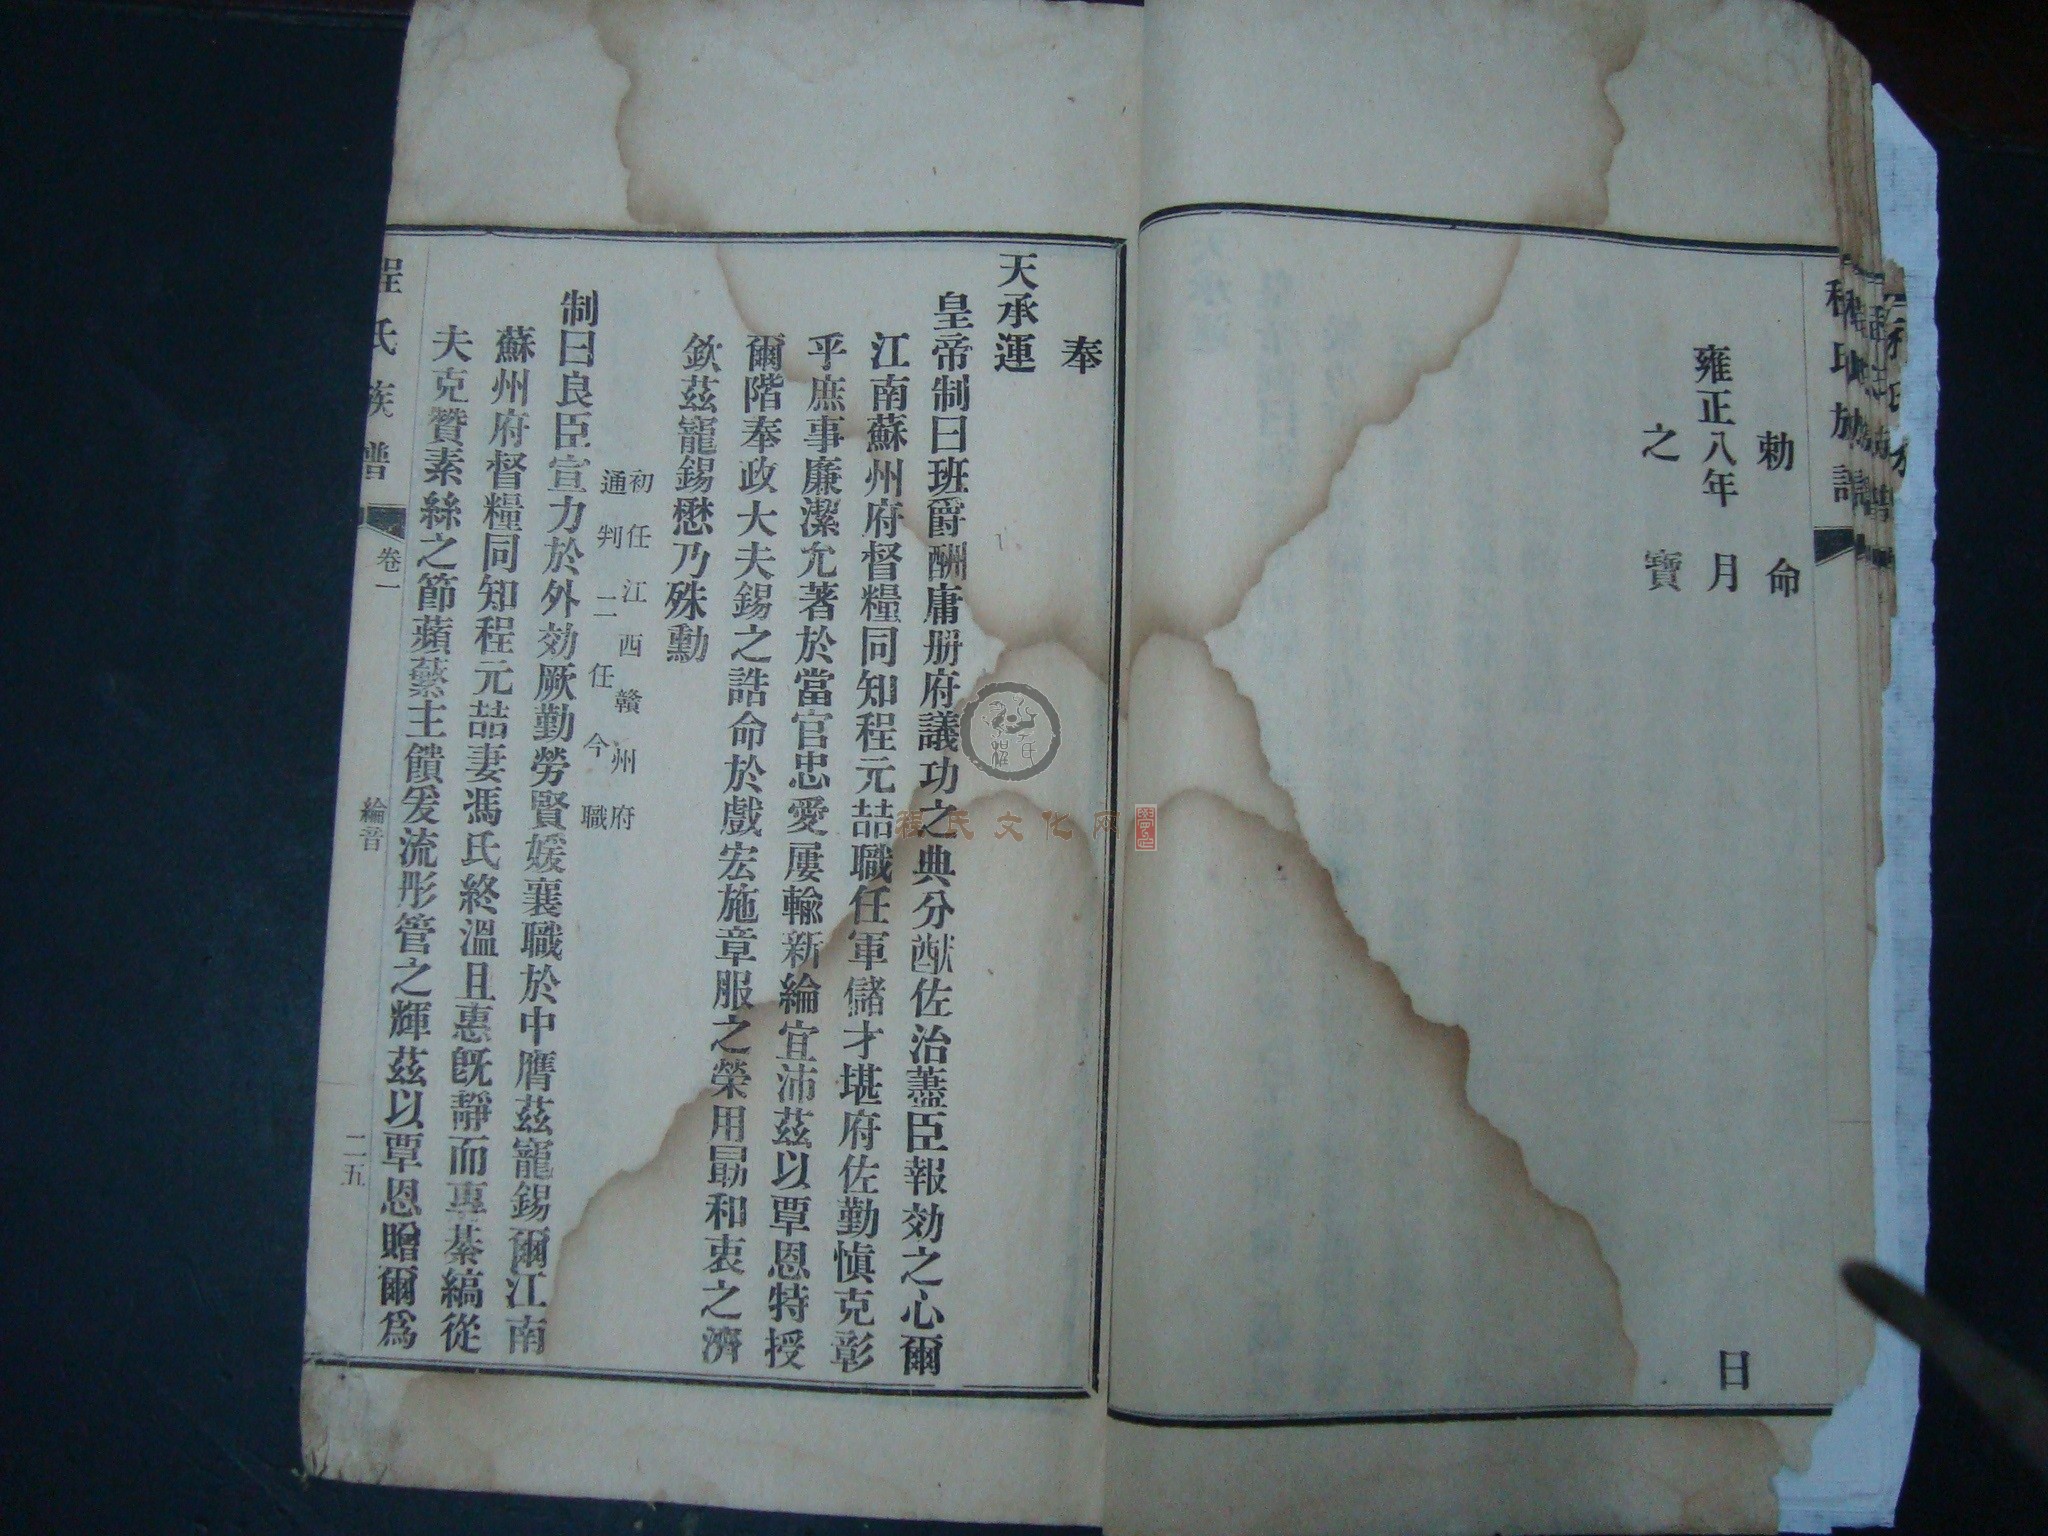 勅命
雍正八年 月 日
之寶
奉
天承運
皇帝制曰班爵酬庸册府議功之典分猷佐治藎臣報効之心爾
江南蘇州府督糧同知程元喆職任軍儲才堪府佐勤愼克彰
乎庶事廉潔允著於當官忠愛屢輸新綸宜沛茲以覃恩特授
爾階奉政大夫錫之誥命於戲宏施章服之榮用勗和衷之濟
欽茲寵錫懋乃殊勳
初任江西贛州府
通判二任今職
制曰良臣宣力於外効厥勤勞賢媛襄職於中膺茲寵錫爾江南
蘇州府督糧同知程元喆妻馮氏終溫且惠旣靜而專綦縞從
夫克贊素絲之節蘋蘩主饋爰流彤管之輝茲以覃恩贈爾爲
程氏族譜
卷一
綸音
二五
程氏文化网